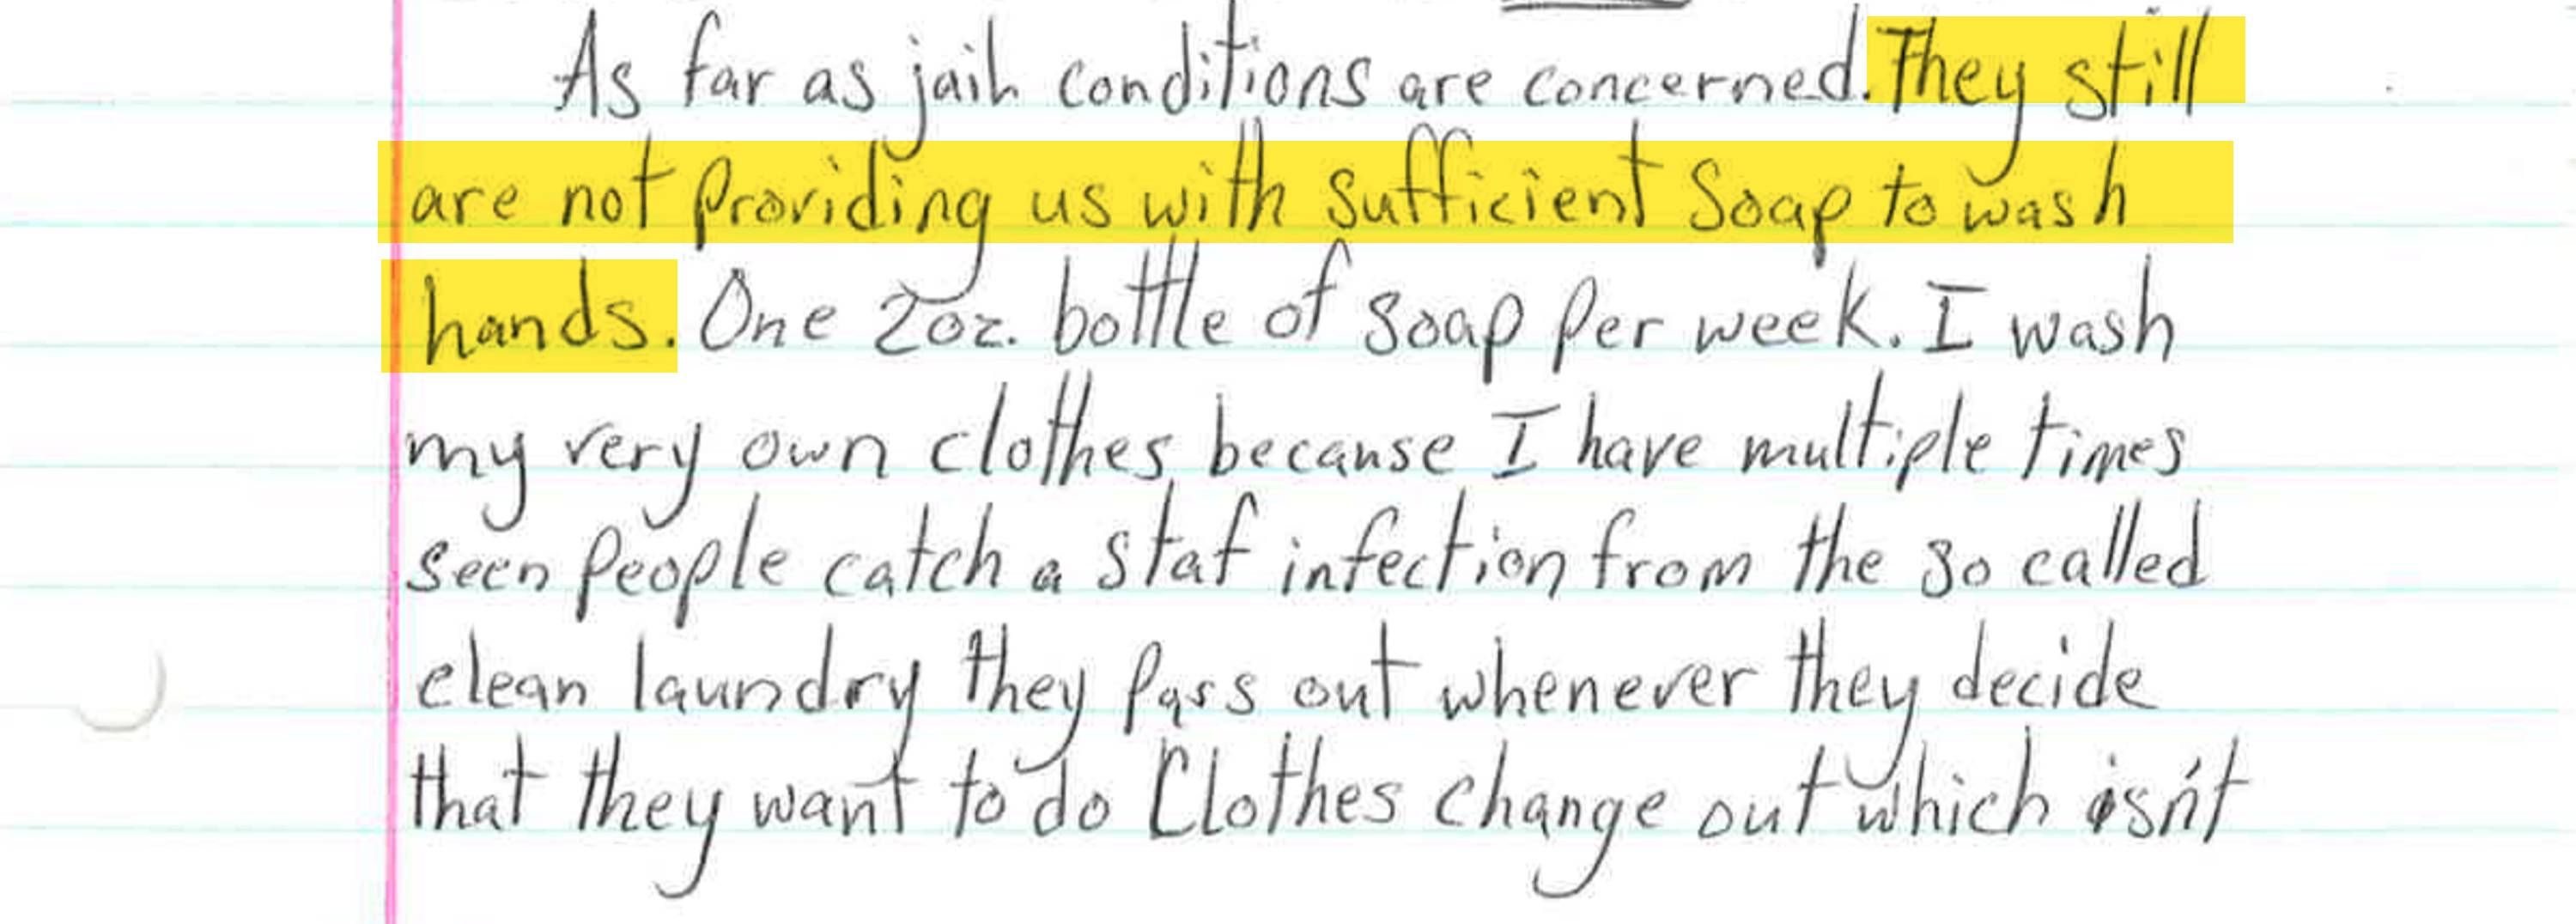 As far as jail conditions are concerned. They still
are not Providing us with sufficient Soap to wash
hands. One 2oz. bottle of soap Per week. I wash
my very own clothes because I have multiple times
seen People catch a staf infection from the so called
clean laundry they Pass out whenever they decide
that they want to do Clothes change out which isn't